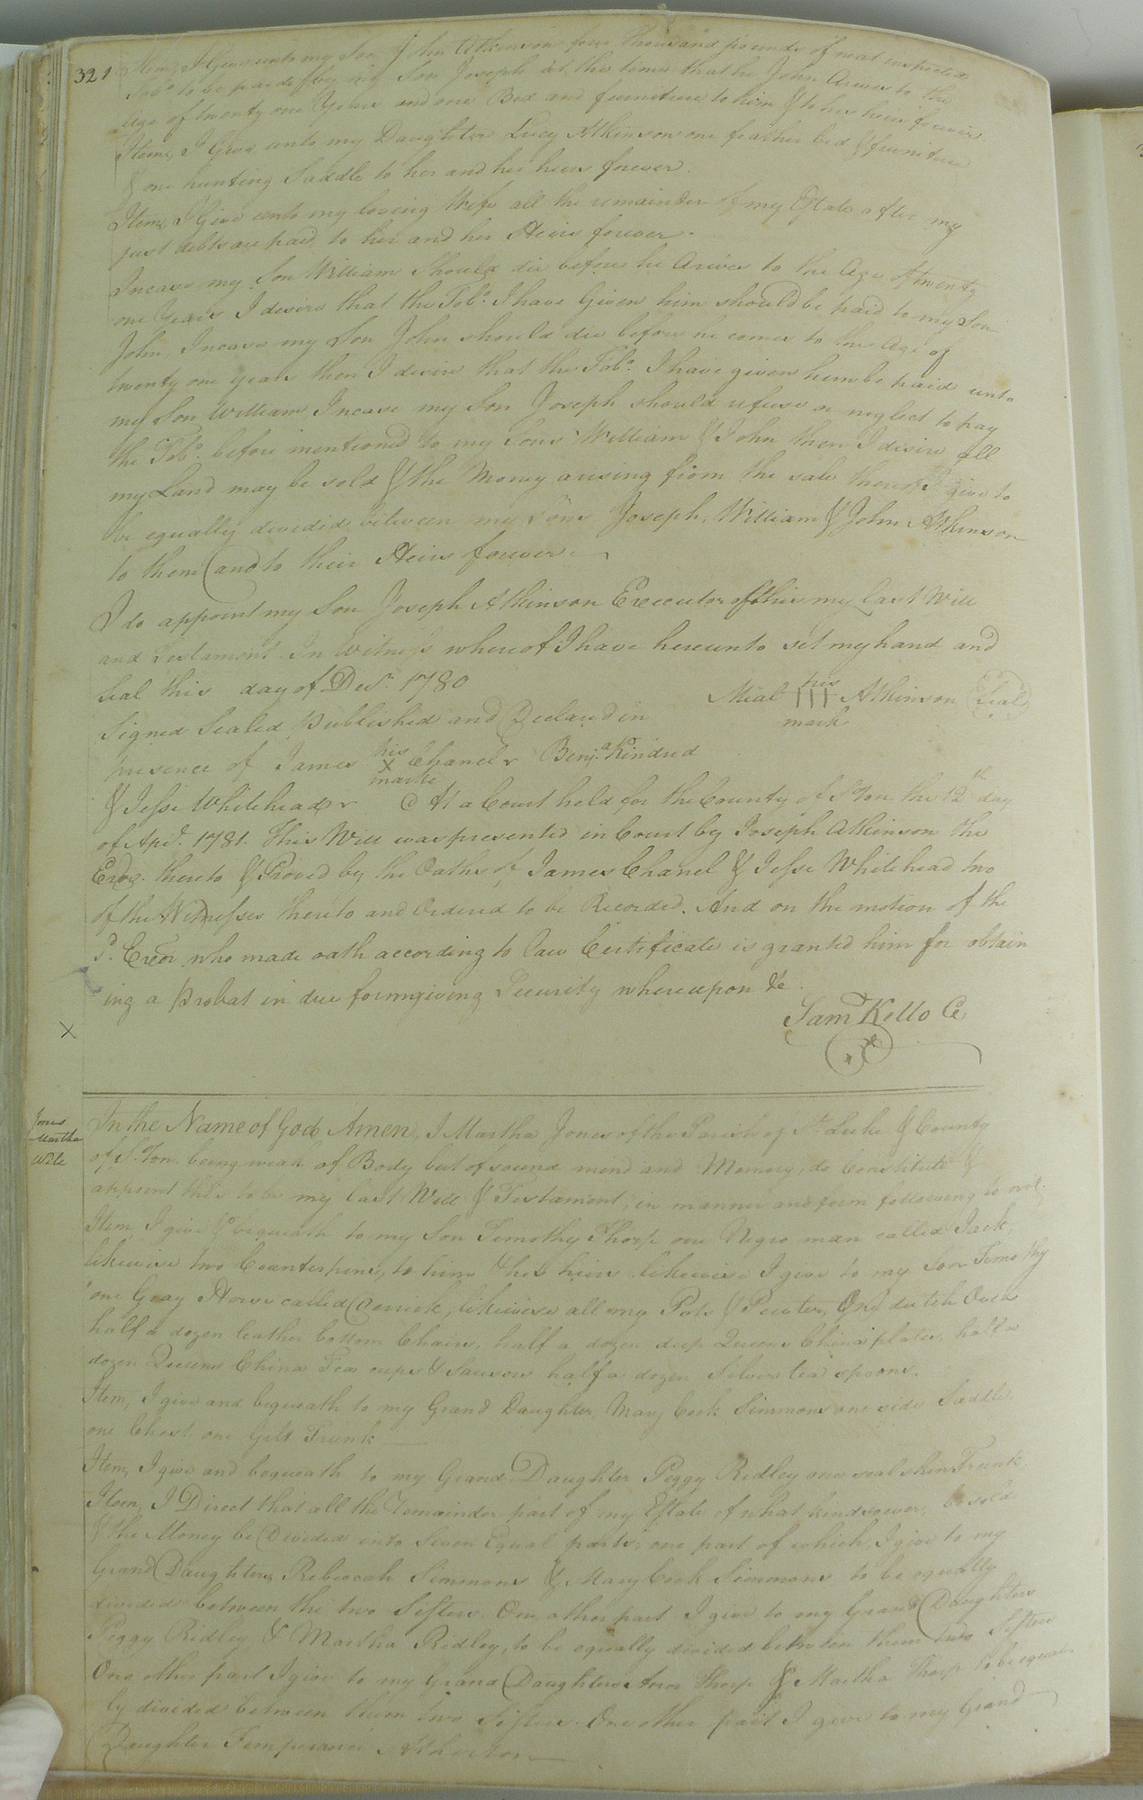 321
Item, I Give unto my Son John Atkinson four thousand pounds of neat inspected
Tobo. to be paid by my Son Joseph at the time that he, John Arives to the
age of twenty one Years and one Bed and furniture to him & to his heirs forever.
Item, I Give unto my Daughter Lucy Atkinson one feather bed & furniture
& one hunting Saddle to her and her heirs forever.
Item, I Give unto my loving Wife all the remainder of my Estate after my
just debts are paid, to her and her Heirs forever.
Incase my Son William Should die before he Arives to the Age of twenty
one Years I desire that the Tobo. I have Given him should be paid to my Son
John, Incase my Son John should die before he comes to the Age of
twenty one years then I desire that the Tobo. I have given him be paid unto
my Son William Incase my Son Joseph should refuse or neglect to pay
the Tobo. before mentioned to my Sons William & John then I desire all
my Land may be sold & the Money arising from the sale thereof I give to
be equally devided between my sons Joseph, William & John Atkinson
to them and to their Heirs forever.
I do appoint my Son Joseph Atkinson Executor of this my Last Will
and Testament In Witness whereof I have hereunto set my hand and
Seal this day of Decr. 1780
Mial his III mark Atkinson Seal
Signed Sealed Published and Declared in
presence of James his X mark Chanel r Benja. Kindred
& Jesse Whitehead r @ At a Court held for the County of So.ton the 12th day
of Apil. 1781. This Will was presented in Court by Joseph Atkinson the
Exor. thereto & Proved by the Oaths of James Chanel & Jesse Whitehead two
of the Witnesses thereto and Ordered to be Recorded. And on the motion of the
Sd. Exor who made oath according to Law Certificate is granted him for obtain
ing a Probat in due form giving Security whereupon &c.
Saml Kello Ct
X
Jones
Martha
Will
In the Name of God Amen, I Martha Jones of the Parish of St. Luke & County
of So.Ton being weak of Body but of sound mind and Memory, do Constitute &
appoint this to be my last Will & Testament, in manner and form following to wit,
Item, I give & bequeath to my Son Timothy Thorp one Negro man called Jack,
likewise two Counterpins, to him & his heirs likewise I give to my Son Timothy
one Gray Horse called Derrick, likewise all my Pots & Pewter, One dutch Oven
half a dozen leather bottom Chairs, half a dozen deep Queens China plates, half a
dozen Queens China Tea cups & sausors half a dozen Silver tea spoons.
Item, I give and bequeath to my Grand Daughter Mary Cock Simmons one side Saddle,
one Chest, one Gilt Trunk
Item, I give and bequeath to my Grand Daughter Peggy Ridley one seal skin Trunk
Item, I Direct that all the Remainder part of my Estate of what kind soever, be sold
& the Money be Devided into Seven Equal parts, one part of which I give to my
Grand Daughters Rebecah Simmons & Mary Cock Simmons to be equally
divided between the two Sisters. One other part I give to my Grand Daughters
Peggy Ridley & Martha Ridley, to be equally divided between them two Sisters
One other part I give to my Grand Daughters Ann Thorp & Martha Thorp to be equal
ly divided between them two Sisters. One other part I give to my Grand
Daughter Temperance Atherton